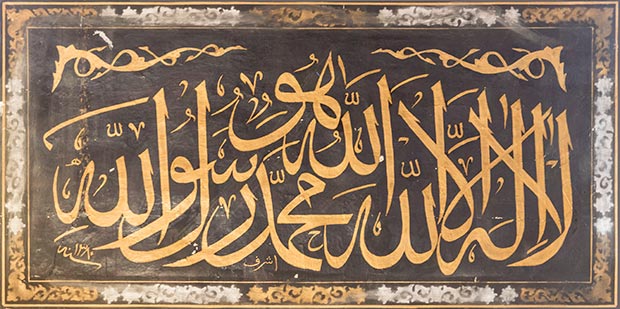 لا اله الا الله الله هو محمد رسول الله
اشرف